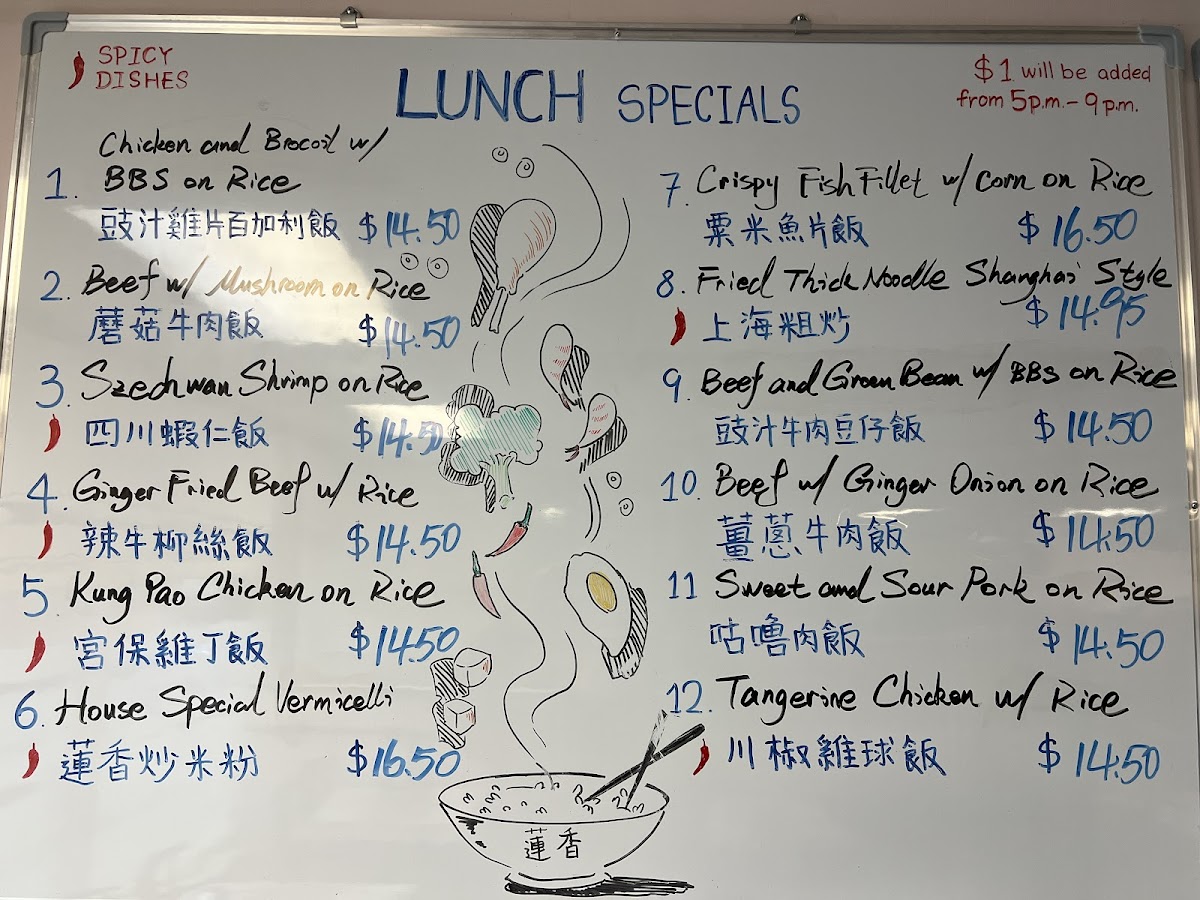 SPICY
DISHES
LUNCH SPECIALS
$1 will be added
from 5p.m. - 9p.m.
Chicken and Brocoil w/
1. BBS on Rice
豉汁雞片百加利飯 $14.50
2. Beef w/ Mushroom on Rice
蘑菇牛肉飯 $14.50
3. Szechwan Shrimp on Rice
四川蝦仁飯 $14.50
4. Ginger Fried Beef w/ Rice
辣牛柳絲飯 $14.50
5. Kung Pao Chicken on Rice
宮保雞丁飯 $14.50
6. House Special Vermicelli
蓮香炒米粉 $16.50
7. Crispy Fish Fillet w/ Corn on Rice
粟米魚片飯 $16.50
8. Fried Thick Noodle Shanghai Style
上海粗炒 $14.95
9. Beef and Green Bean w/ BBS on Rice
豉汁牛肉豆仔飯 $14.50
10. Beef w/ Ginger Onion on Rice
薑蔥牛肉飯 $14.50
11 Sweet and Sour Pork on Rice
咕嚕肉飯 $14.50
12. Tangerine Chicken w/ Rice
川椒雞球飯 $14.50
蓮香